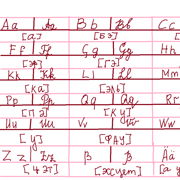 Aa Aa Bb Bb Cc
[а] [бэ]
Ff Ff Gg Gg Hh
[эф] [гэ]
Kk Kk Ll Ll Mm
[ка] [эль]
Pp Pp Qq Qq Rr
[пэ] [ку]
Uu Uu Vv Vv Ww
[у] [фау]
Zz Zz ß ß Ää
[цэт] [эсцет]